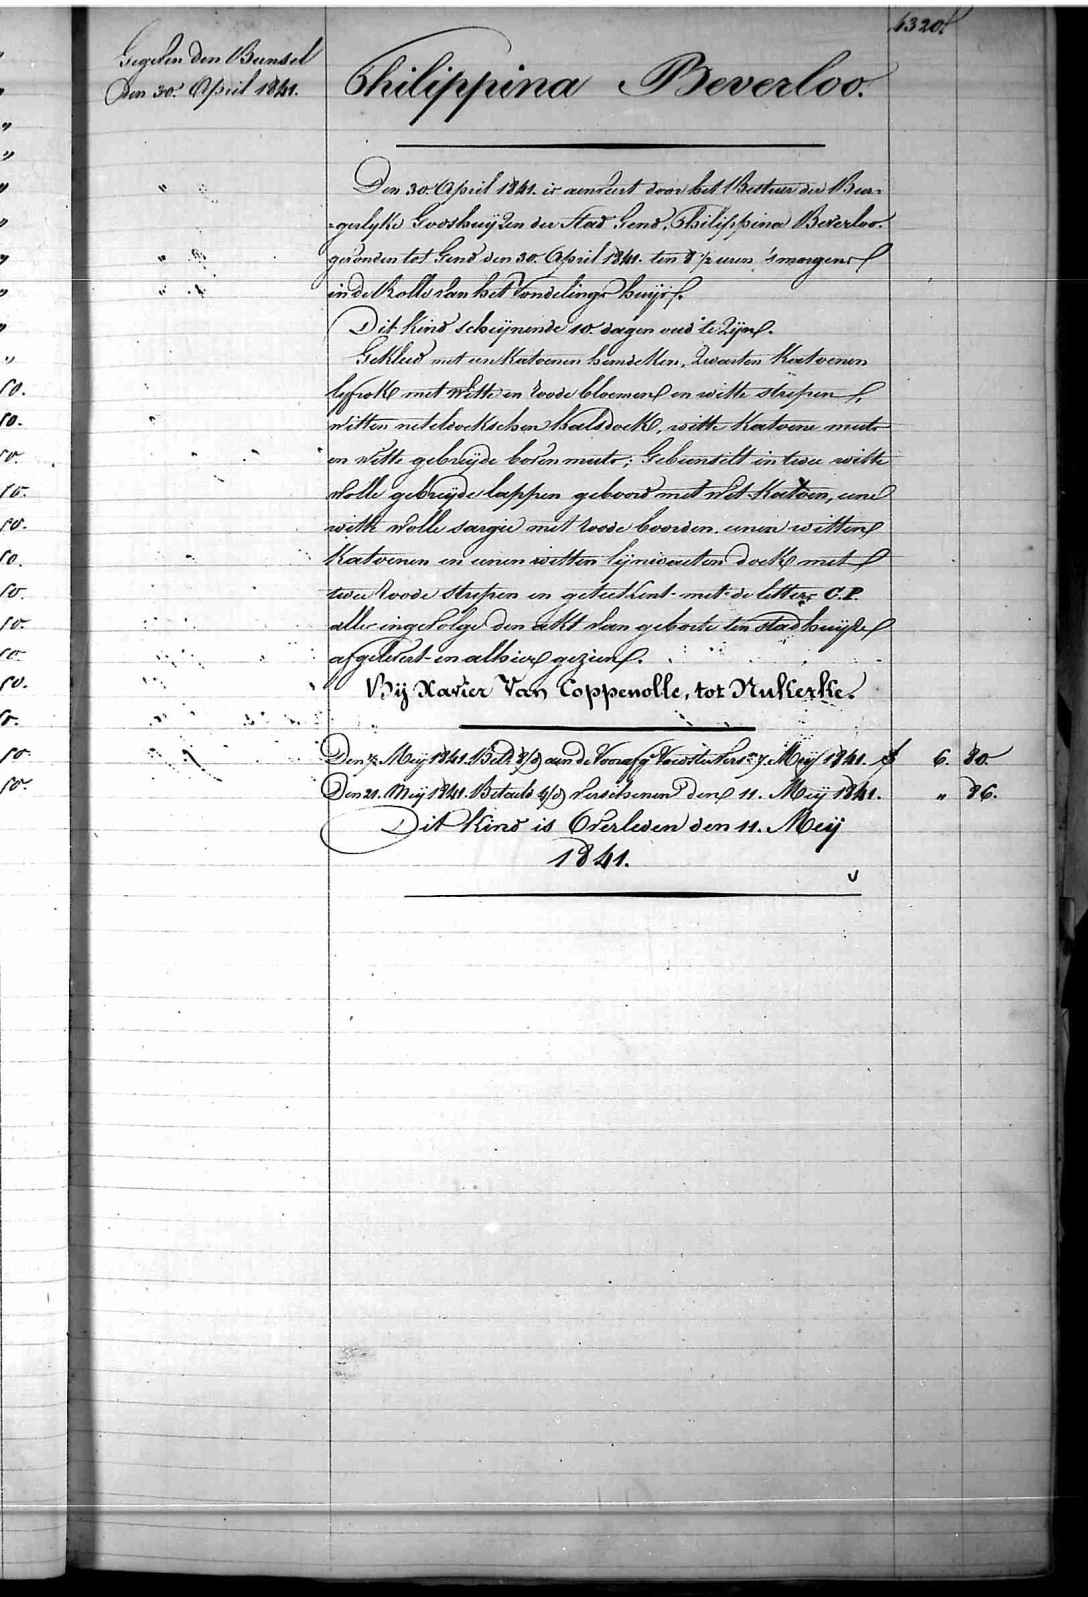 4320.
Gegeven den Bunsel
Den 30. April 1841.
Philippina Beverloo.
Den 30. April 1841. is aenveert door het Bestuer der Bur=
=gerlyke Godshuijzen der Stad Gend, Philippina Beverloo.
gevonden tot Gend den 30. April 1841. ten 8 ½ uren 's morgens
in de Rolle van het Vondelings huijs.
Dit Kind schijnende 10. dagen oud te Zijn.
Gekleed met een Katoenen hemdeken, Zwarten Katoenen
lyfrok met Witte en roode bloemen en witte strepen,
Witten neteldoekschen halsdoek, witte Katoene muts
en Witte gebreijde boven muts; Gebunselt in twee witte
Wolle gebreijde lappen geboord met Wit Katoen, eene
witte Wolle sargie met roode boorden, eenen witten
Katoenen en eenen witten lijnwaeten doek met
twee Roode strepen en geteekent met de letters C.P.
alles ingevolge den akt van geboorte ten Stadhuijse
afgelevert en alhier gezien.
Bij Xavier Van Coppenolle, tot Nukerke.
Den 7. Meij 1841. Bet. aan de Voorsterkers 7. Meij 1841. 6. 80.
Den 21. Meij 1841. Betaeld verschenen den 11. Meij 1841. " 86.
Dit Kind is Overleden den 11. Meij
1841.
50.
50.
50.
50.
50.
50.
50.
50.
50.
50.
50.
50.
50.